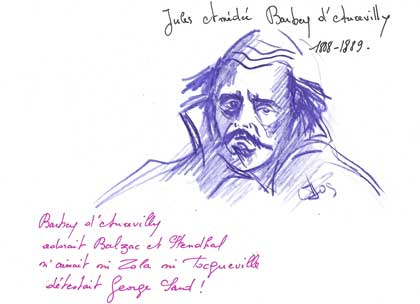 Jules Amédée Barbey d'Aurevilly
1808-1889.
Barbey d'Aurevilly
adorait Balzac et Stendhal
n'aimait ni Zola ni Tocqueville
détestait George Sand !